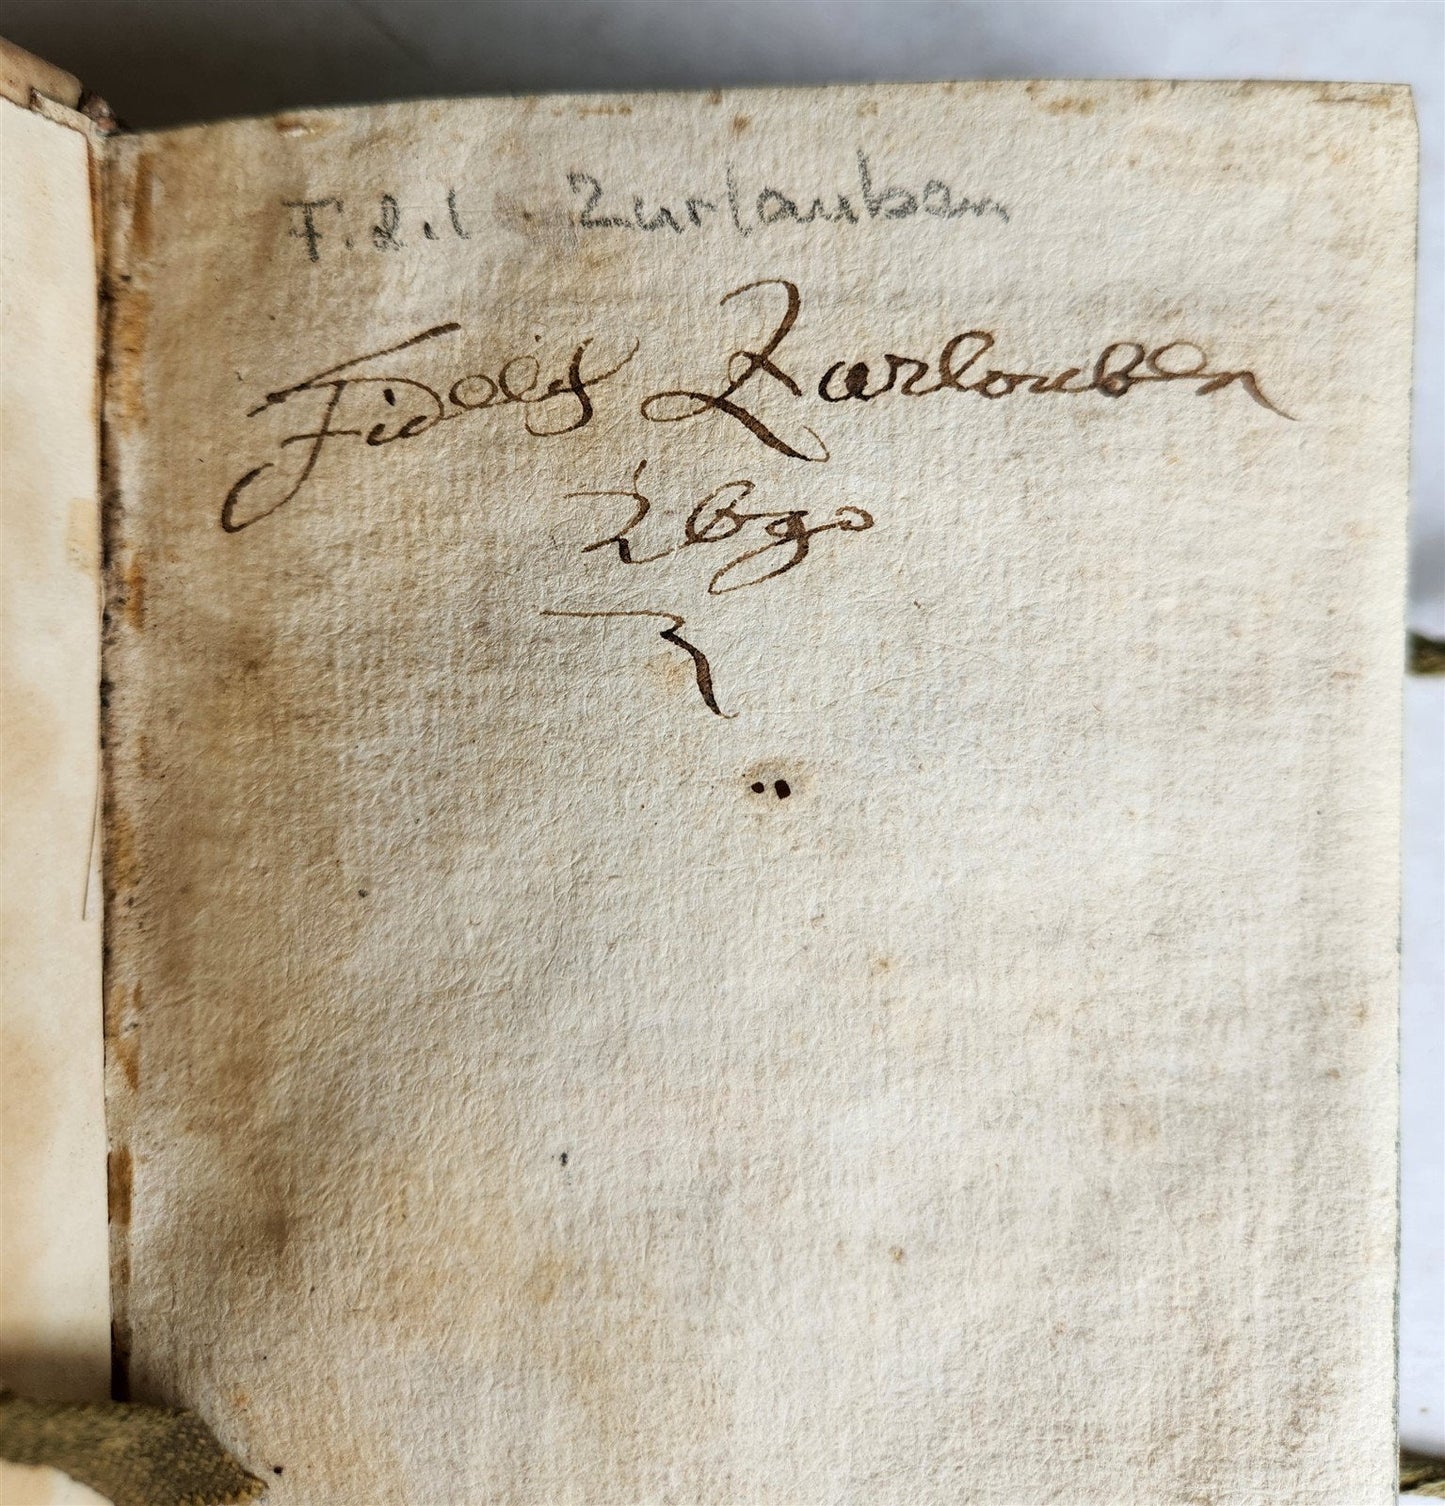 Fidel Zurlauben
Fidelis Zurlauben
1690